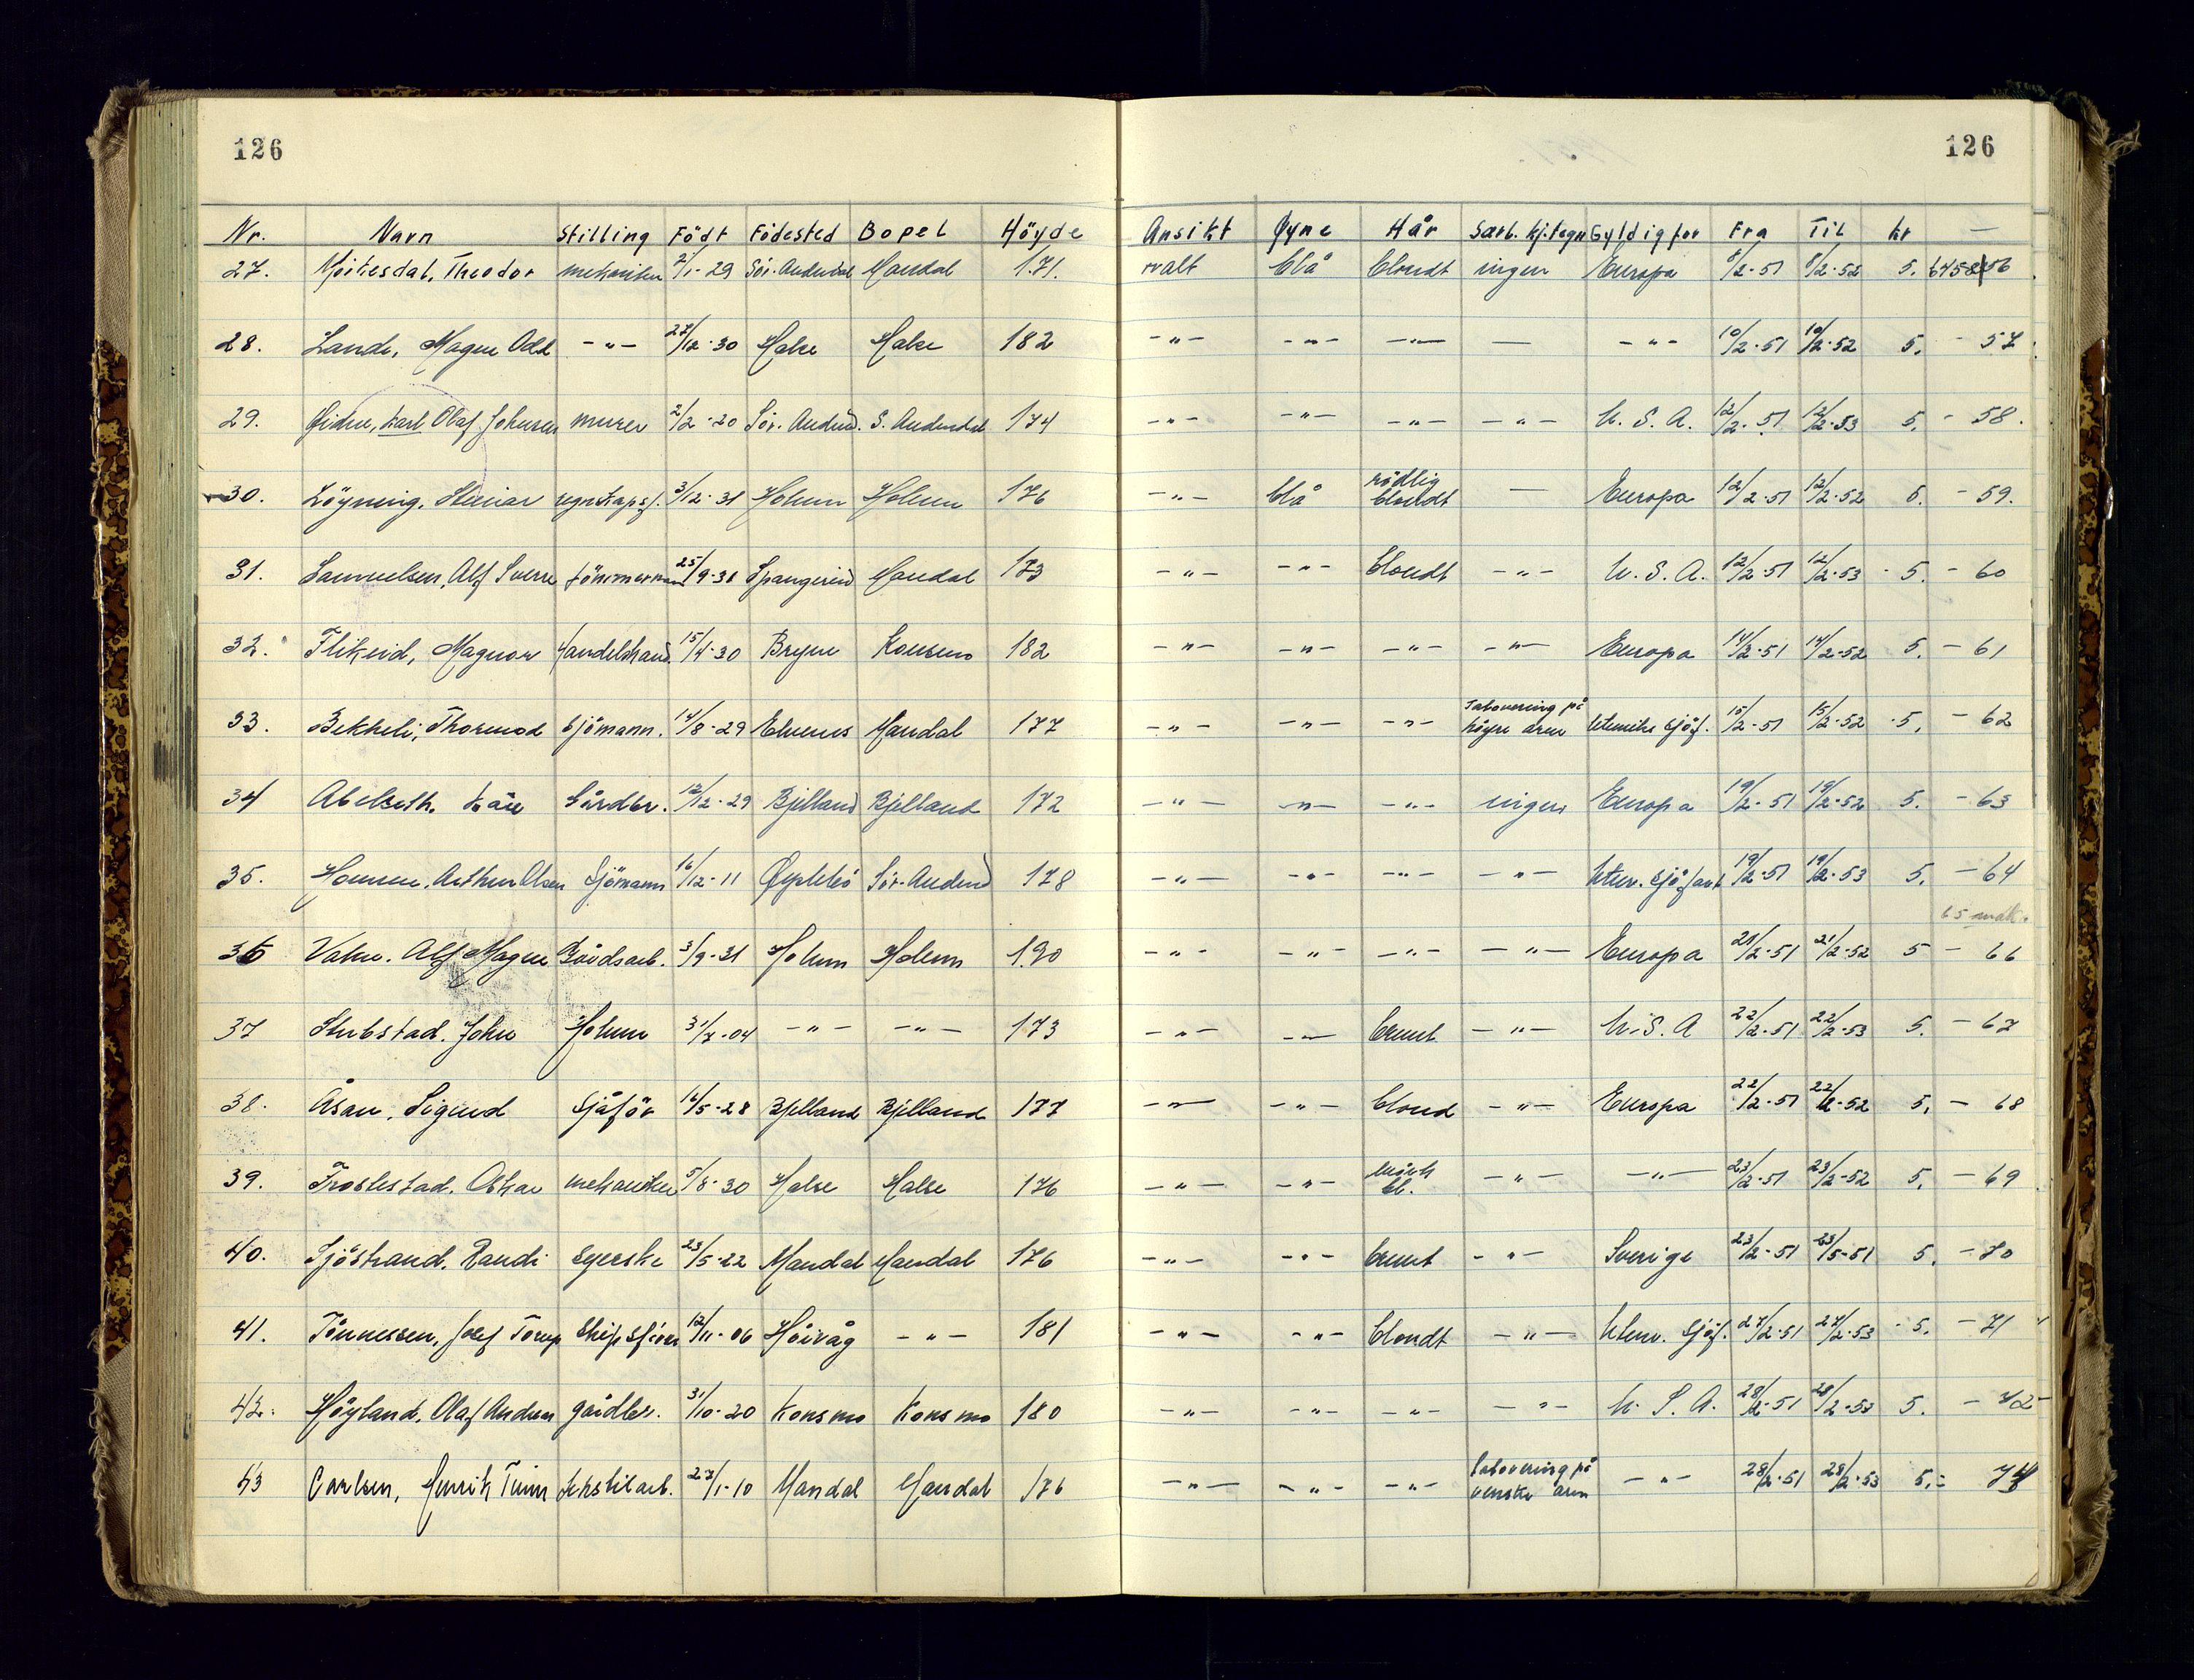 126 126
Nr. Navn Stilling Födt Födested Bopel Höyde Ansikt Øyne Hår Særb. kj.tegn Gyldig for Fra Til kr —
27. Mörkesdal, Theodor mekaniker 2/1-29 Sör. Audnedal Mandal 1.71. ovalt blå blondt ingen Europa 8/2-51 8/2-52 5. 56
28. Lande, Magne Odd -"- 27/12-30 Halse Halse 182 -"- -"- -"- — -"- 10/2-51 10/2-52 5. - 57
29. Karl Olaf Johnsen murer 2/2-20 Sör. Audned. S. Audnedal 174 -"- -"- -"- -"- U. S. A. 12/2-51 12/2-53 5. - 58.
30. Löyning, Steinar regnskapsf. 3/12-31 Holum Holum 176 -"- blå rödlig blondt — Europa 12/2-51 12/2-52 5. - 59.
31. Samuelsen, Alf Sverre tömmermann 25/9-31 Spangereid Mandal 173 -"- -"- blondt -"- U. S. A. 12/2-51 12/2-53 5. - 60
32. Flikeid, Magnor Handelsmand. 15/4-30 Bryne Konsmo 182 -"- -"- -"- -"- Europa 14/2-51 14/2-52 5. - 61
33. Bekkeli, Thormod Sjömann. 14/8-29 Elverum Mandal 177 -"- -"- -"- Tatovering på höyre arm Utenriks sjöf. 15/2-51 15/2-52 5. - 62
34 Abelseth, Kåre Gårdbr. 12/12-29 Bjelland Bjelland 172 -"- -"- -"- ingen Europa 19/2-51 19/2-52 5. - 63
35. Arthur Olsen Sjömann 16/12-11 Øyslebö Sör-Audned 178 -"- -"- -"- -"- Utenr. sjöfart 19/2-51 19/2-53 5. - 64
65 mak.
36 Alf Magne Gårdsarb. 3/9-31 Holum Holum 1.90 -"- -"- -"- -"- Europa 21/2-51 21/2-52 5 - 66
37 Stubstad, John Holum 31/7-04 -"- -"- 173 -"- -"- brunt -"- U.S.A 22/2-51 22/2-53 5. - 67
38. Åsan, Sigurd Sjåför 16/5-28 Bjelland Bjelland 177 -"- -"- blond -"- Europa 22/2-51 22/2-52 5. - 68
39. Trostestad, Oskar mekaniker 5/8-30 Halse Halse 176 -"- -"- mörk bl. -"- -"- 23/2-51 23/2-52 5. - 69
40. Sjöstrand, Randi syerske 23/5-22 Mandal Mandal 176 -"- -"- brunt -"- Sverige 23/2-51 23/5-51 5. - 70
41. Tönnessen, Josef Torup Skipsförer 12/11-06 Höivåg -"- 181 -"- -"- blondt -"- Utenr. sjöf. 27/2-51 27/2-53 5. - 71
42. Höyland, Olaf Andreas gårdbr. 31/10-20 Konsmo Konsmo 180 -"- -"- -"- -"- U. S. A. 28/2-51 28/2-53 5. - 72
43 Carlsen, Henrik Tuin tekstilarb. 27/1-10 Mandal Mandal 176 -"- -"- -"- Tatovering på venstre arm -"- 28/2-51 28/2-53 5.- 74